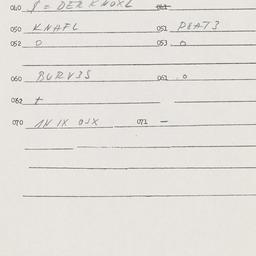 040 8 = DER KNOXL 041
050 KNAFL 051 PEAT3
052 0 053 0
060 BURV3S 061 . 0
062 +
070 1N IX 071 —